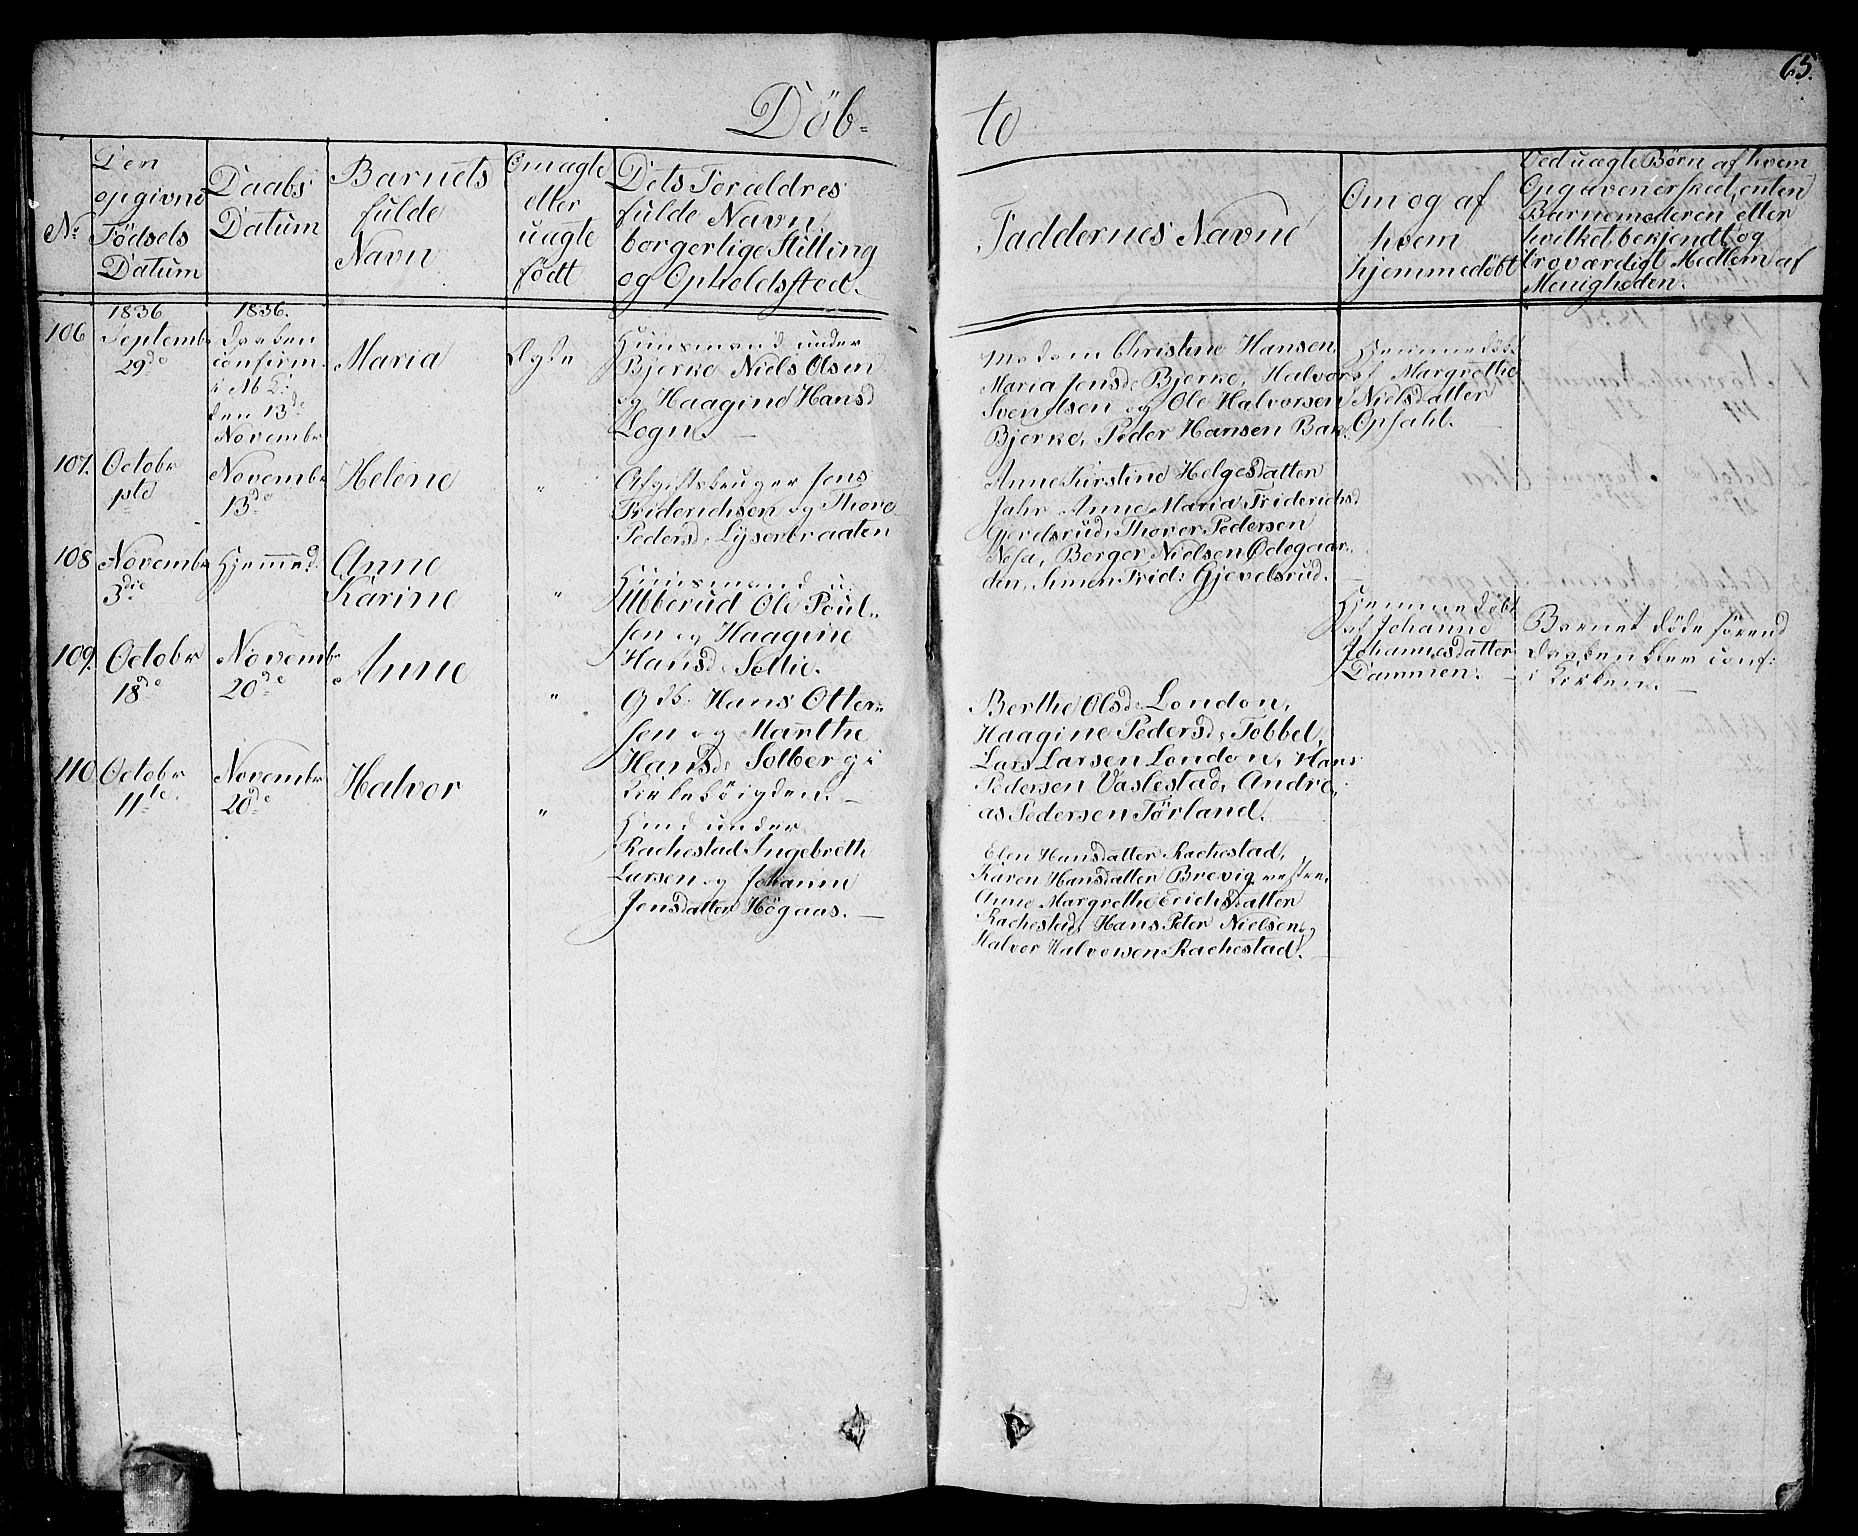 65.
Döb=
te
No
Den
opgivne
Födsels
Datum
Daabs
Datum
Barnets
fulde
Navn
Om ægte
eller
uægte
födt
Dets Forældres
fulde Navn,
borgerlige Stilling
og Opholdssted.
Faddernes Navne
Om og af
hvem
hjemmedöbt
Ved uægte Børn af hvem
Opgaven er skeed, enten
Barnemoderen eller
hvilket bekjendt og
troværdigt Medlem af
Menigheden.
106
1836
Septembr
29de
1836.
Daaben
confirm.
den 13de
Novembr
Maria
Ægte
Huusmand under
Bjerke Niels Olsen
og Haagine Hansd
Logn.
Madam Christine Hansen,
Maria Jensd: Bjerke, Halvor
Svendsen og Ole Halvorsen
Bjerke, Peder Hansen Bak.
Hjemmedöbt
af Margrethe
Nielsdatter
Opsahl.
107.
Octobr
1ste
Novembr
13de
Helene
"
Afgiftsbruger Jens
Friderichsen og Thore
Pedersd. Lyserbraaten
Anne Kirstine Helgesdatter
Jahr, Anne Maria Friderichsd
Gjerdsrud, Thorer Pedersen
Nesa, Berger Nielsen Ödegaar-
den, Simen Frid: Gjevelsrud.
108
Novembr
3die
Hjemmed:
Anne
Karine
"
Huusmand u:
Ubberud Ole Poul-
sen og Haagine
Hansd. Sollie.
Hjemmedöbt
af Johanne
Johannesdatter
Dammen.
Barnet döde förend
Daaben blev conf:
i Kirken.
109.
Octobr
18de
Novembr
20de
Anne
"
Gdb. Hans Otter-
sen og Marthe
Hansd: Solberg i
Kirkeböigden.
Berthe Olsd: London,
Haagine Pedersd: Tobbel,
Lars Larsen London, Hans
Pedersen Vaslestad, Andre-
as Pedersen Törland.
110
Octobr
11te
Novembr
20de
Halvor
"
Hmd under
Rachestad Ingebreth
Larsen og Johanne
Jensdatter Högaas.
Elen Hansdatter Rachestad,
Karen Hansdatter Brevig vestre,
Anne Margrethe Erichsdatter
Rachestad, Hans Peter Nielsen og
Halvor Halvorsen Rachestad.